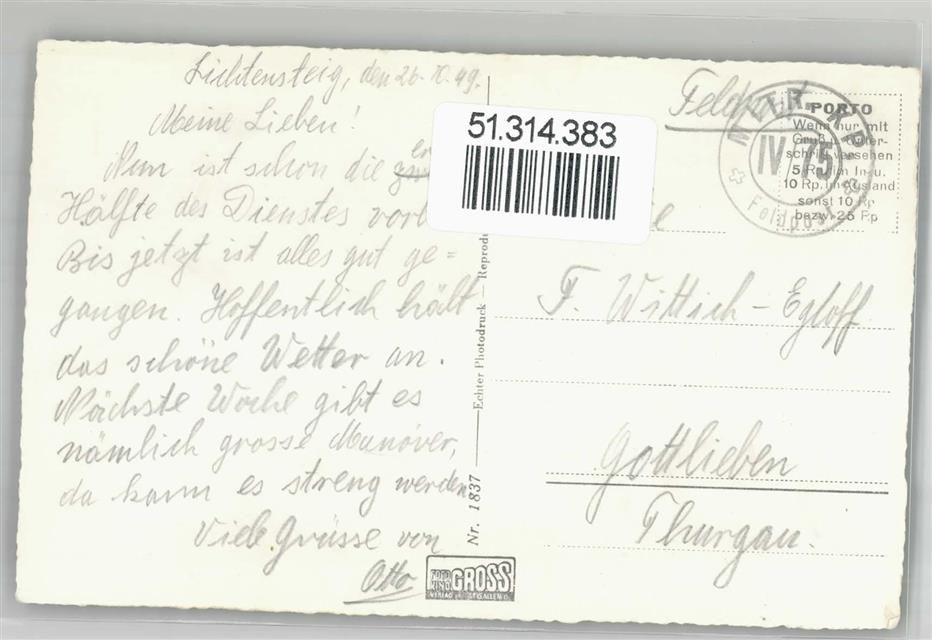 Lichtensteig, den 26.10.49.
Meine Lieben!
Nun ist schon die
Hälfte des Dienstes
Bis jetzt ist alles gut ge=
gangen. Hoffentlich hält
das schöne Wetter an.
Nächste Woche gibt es
nämlich grosse Manöver,
da kann es streng werden
Viele Grüsse von
Otto
Nr. 1837
Echter Photodruck — Reprodu
GROSS
51.314.383
MITR KP
IV/75
Feldpost
PORTO
Wenn nur mit
Gruß u. Unter-
schrift versehen
5 Rp. im In- u.
10 Rp. im Ausland
sonst 10 Rp
bezw. 25 Rp
F. Wittich - Egloff
Gottlieben
Thurgau.